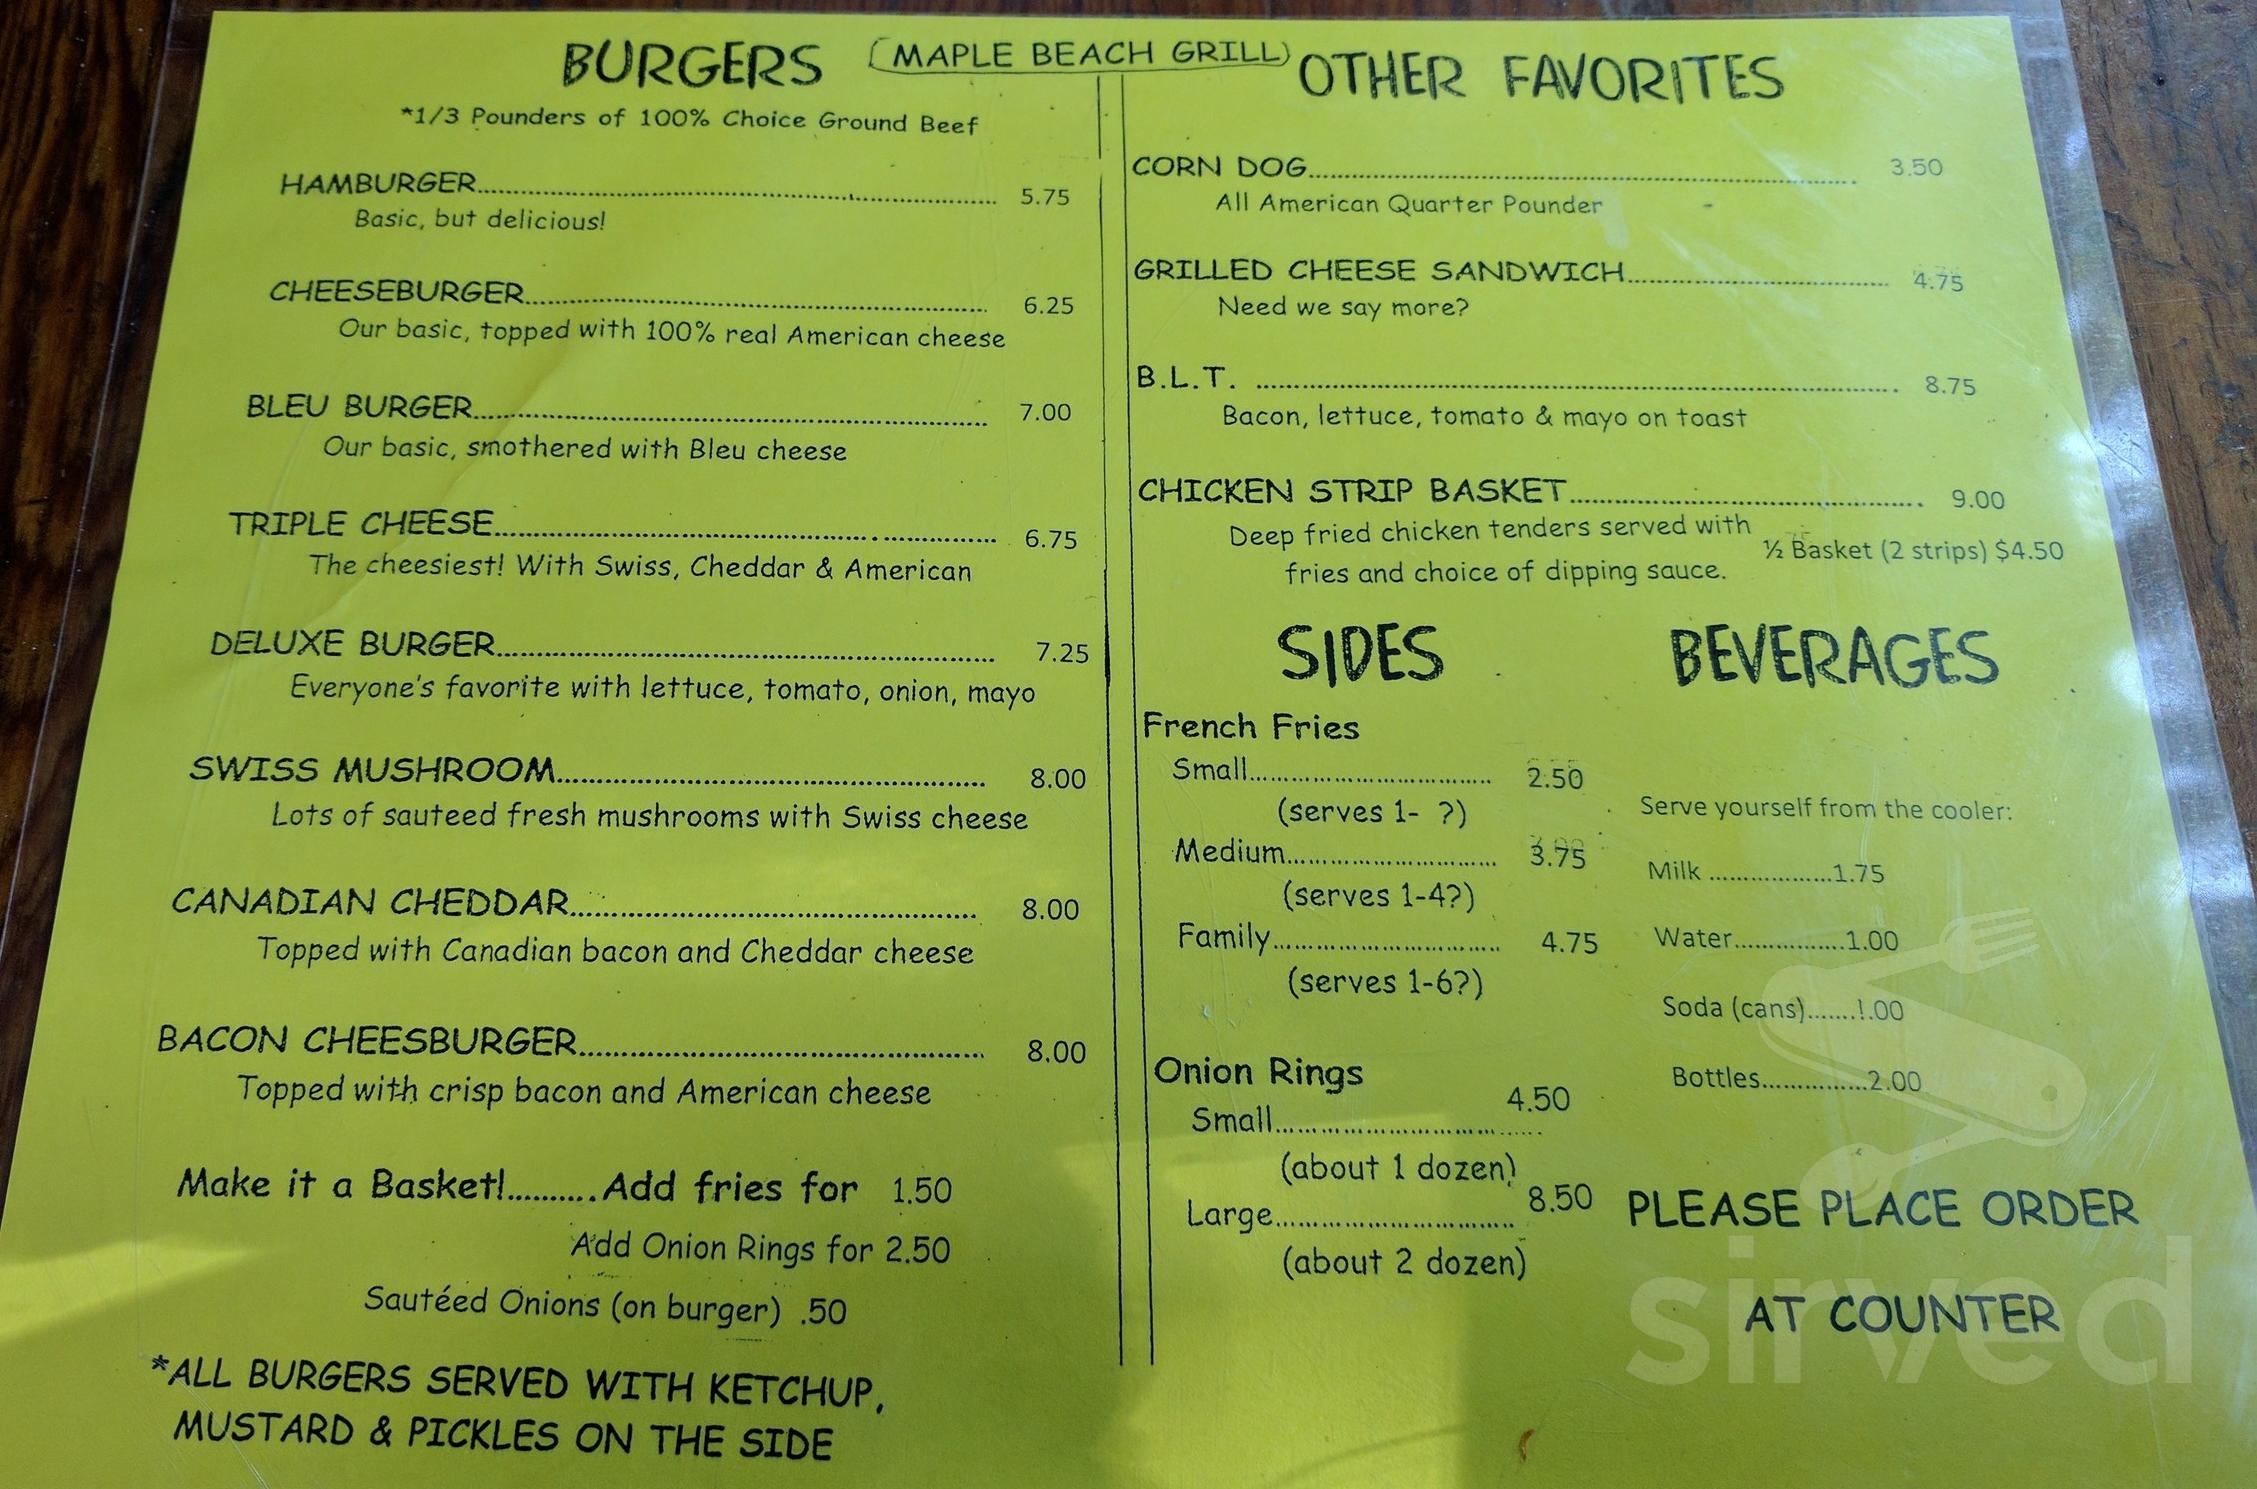 BURGERS
(MAPLE BEACH GRILL)
*1/3 Pounders of 100% Choice Ground Beef
HAMBURGER........ 5.75
Basic, but delicious!
CHEESEBURGER........ 6.25
Our basic, topped with 100% real American cheese
BLEU BURGER........ 7.00
Our basic, smothered with Bleu cheese
TRIPLE CHEESE........ 6.75
The cheesiest! With Swiss, Cheddar & American
DELUXE BURGER........ 7.25
Everyone's favorite with lettuce, tomato, onion, mayo
SWISS MUSHROOM........ 8.00
Lots of sauteed fresh mushrooms with Swiss cheese
CANADIAN CHEDDAR........ 8.00
Topped with Canadian bacon and Cheddar cheese
BACON CHEESBURGER........ 8.00
Topped with crisp bacon and American cheese
Make it a Basket!..........Add fries for 1.50
Add Onion Rings for 2.50
Sautéed Onions (on burger) .50
*ALL BURGERS SERVED WITH KETCHUP,
MUSTARD & PICKLES ON THE SIDE
OTHER FAVORITES
CORN DOG........ 3.50
All American Quarter Pounder
GRILLED CHEESE SANDWICH........ 4.75
Need we say more?
B.L.T. ........ 8.75
Bacon, lettuce, tomato & mayo on toast
CHICKEN STRIP BASKET........ 9.00
Deep fried chicken tenders served with
fries and choice of dipping sauce.
½ Basket (2 strips) $4.50
SIDES
French Fries
Small........ 2.50
(serves 1- ?)
Medium........ 3.75
(serves 1-4?)
Family........ 4.75
(serves 1-6?)
Onion Rings
Small........ 4.50
(about 1 dozen)
Large........ 8.50
(about 2 dozen)
BEVERAGES
Serve yourself from the cooler:
Milk ..................1.75
Water................1.00
Soda (cans).......!.00
Bottles...............2.00
PLEASE PLACE ORDER
AT COUNTER
sirved